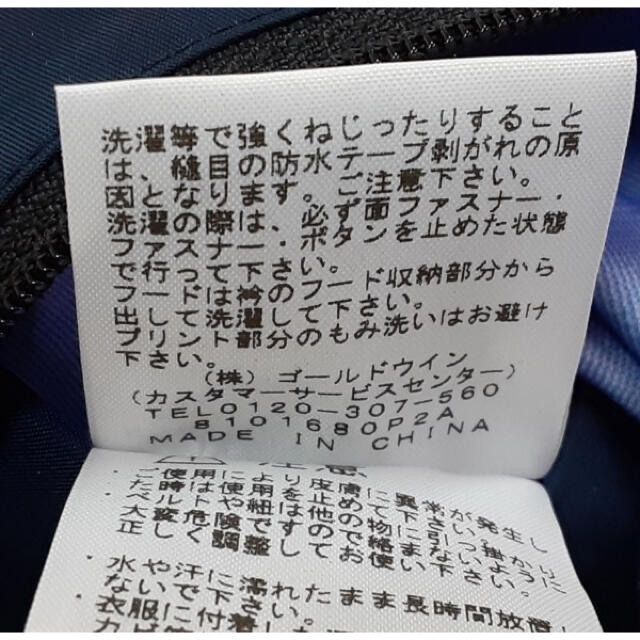 洗濯等で強くねじったりすること
は、縫目の防水テープ剥がれの原
因となります。ご注意下さい。
洗濯の際は、必ず面ファスナー・
ファスナー・ボタンを止めた状態
で行って下さい。
フードは衿のフード収納部分から
出して洗濯して下さい。
プリント部分のもみ洗いはお避け
下さい。
(株) ゴールドウイン
(カスタマーサービスセンター)
TEL0120-307-560
8101680P2A
MADE IN CHINA
ご使用により皮膚に異常が発生し
た時は使用を止めて下さい。
・ベルトや紐は他の物に引っ掛かり
大変危険ですので絡まないように
正しく調整してお使い下さい。
・水や汗に濡れたまま長時間放置し
ないで下さい。
・衣服に付着した